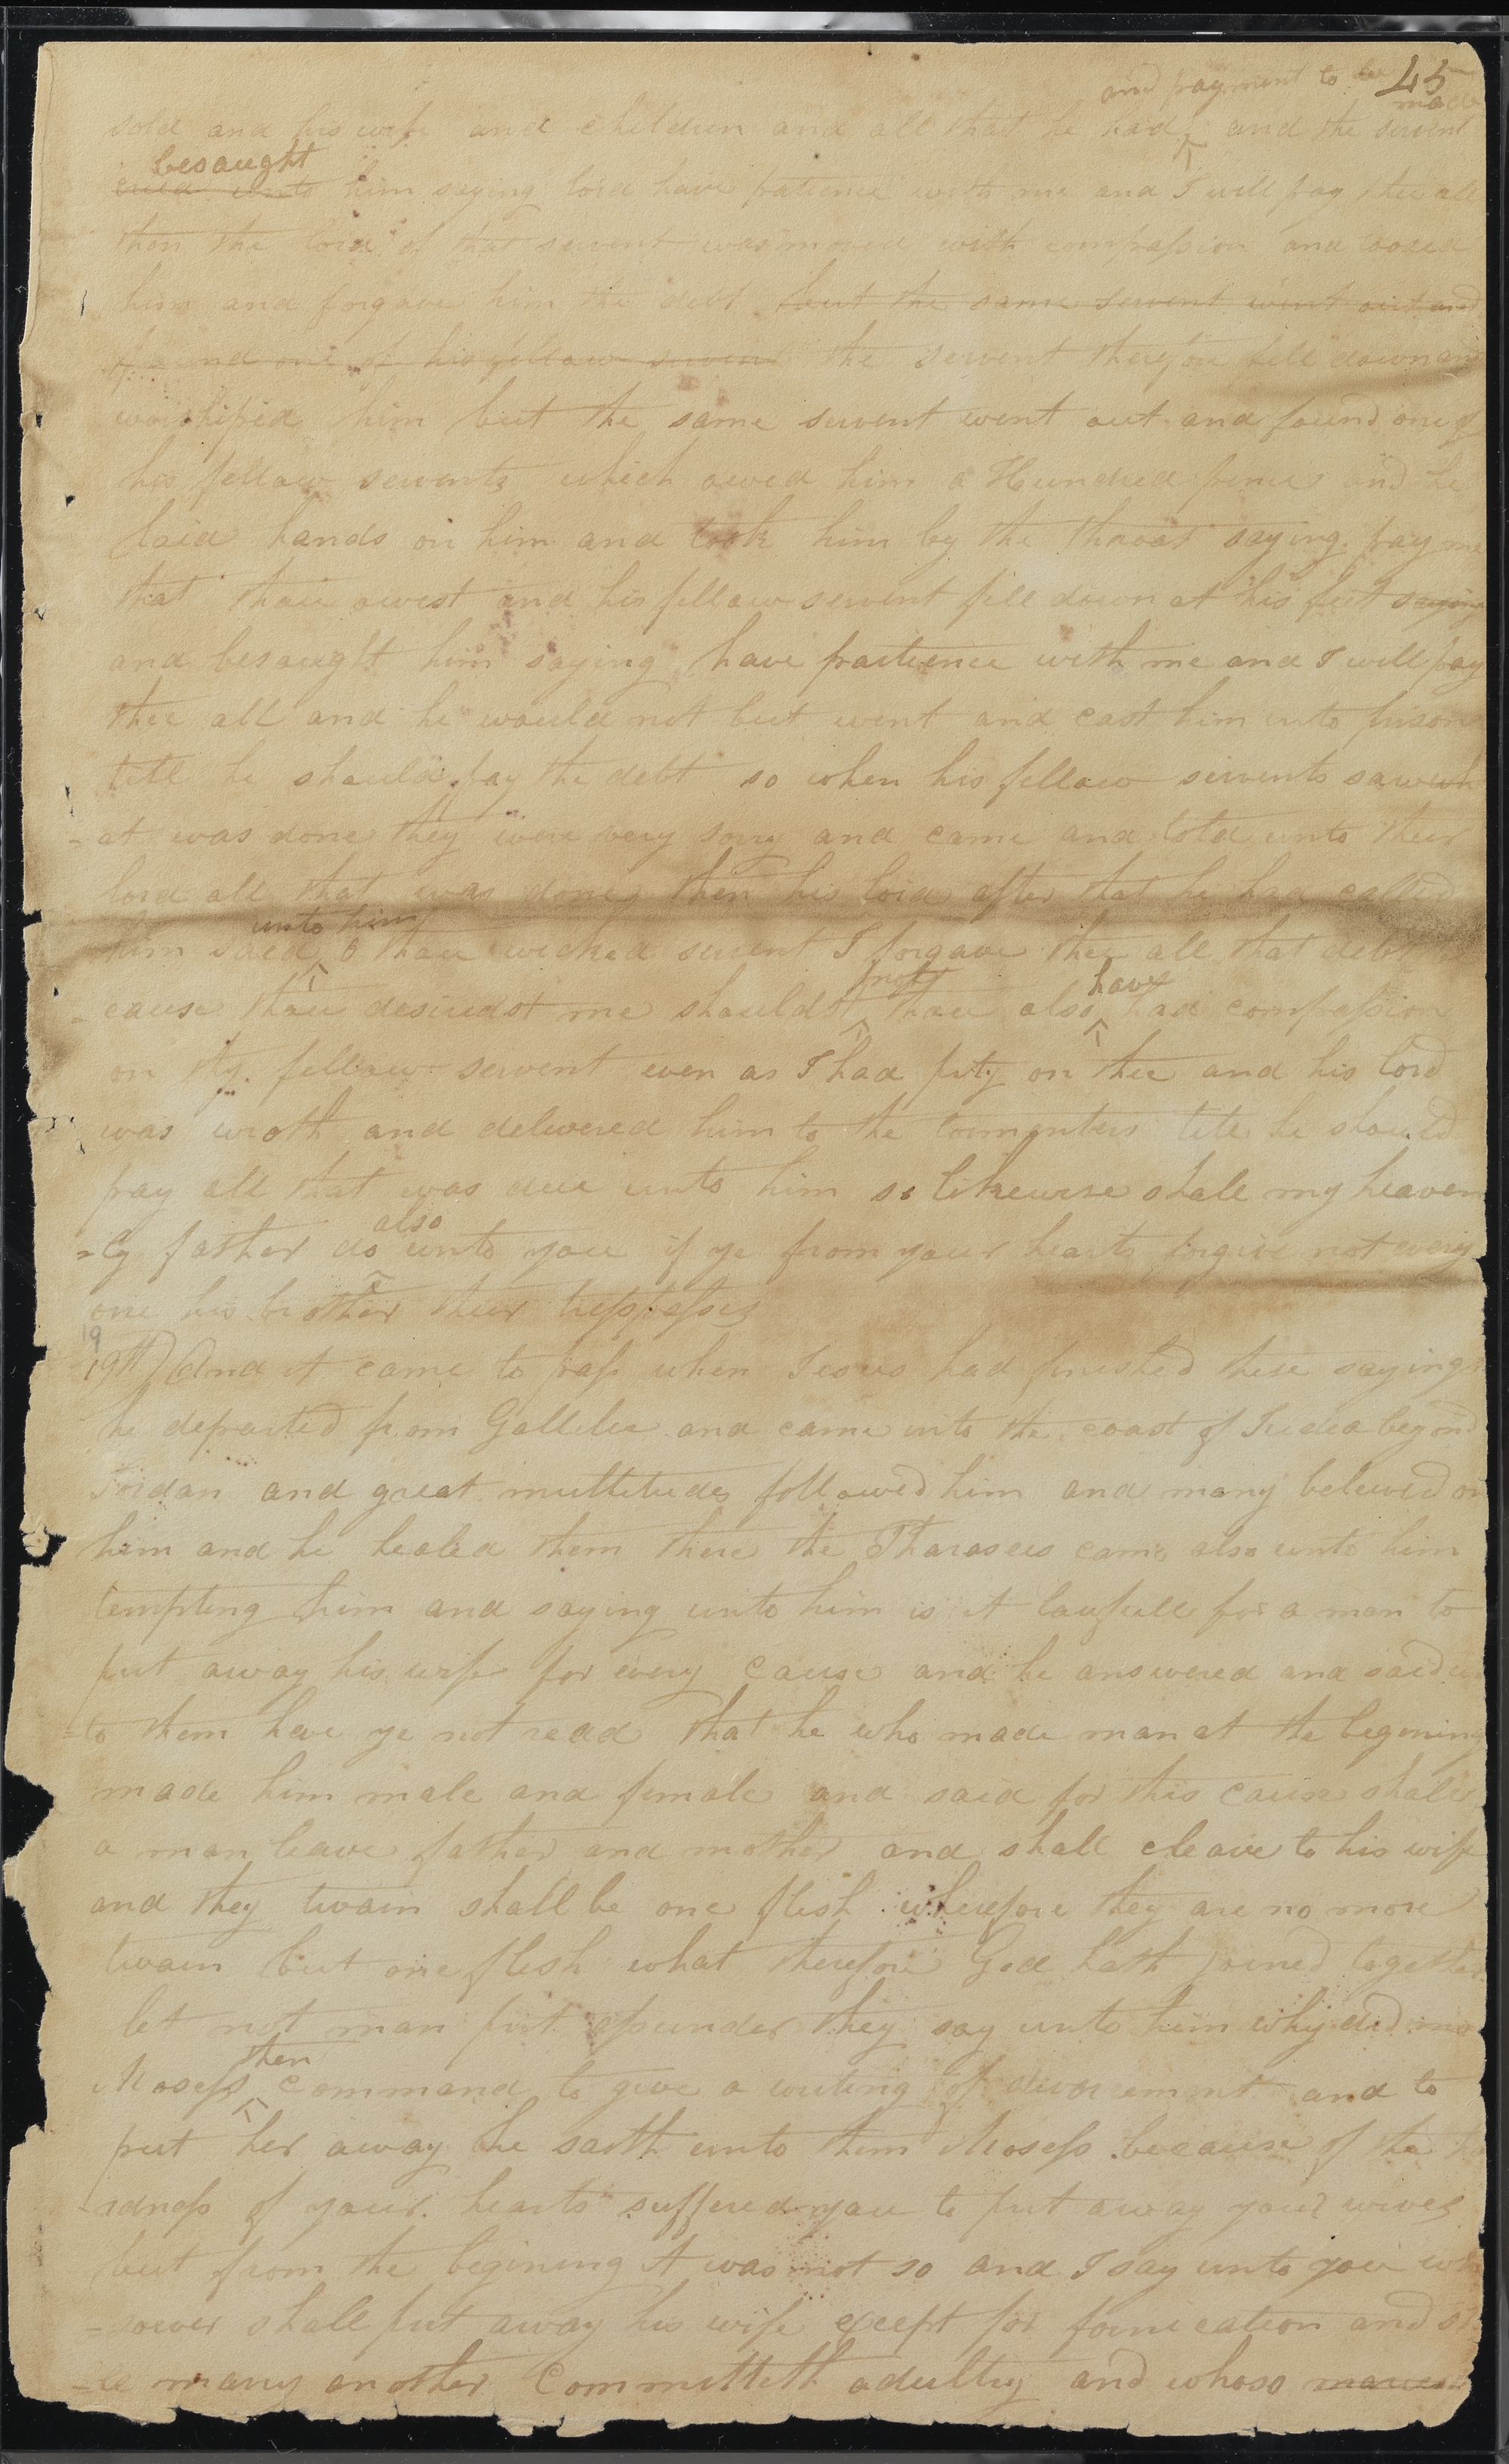 45
and payment to be made
sold and his wife and children and all that he had and the servent
besaught
cried unto him saying lord have patience with me and I will pay thee all
then the lord of that servent was moved with compassion and loosed
him and forgave him the debt but the same servent went out and
found one of his fellow servents the servent therefore fell down and
worshiped him but the same servent went out and found one of
his fellow servents which owed him a Hundred pence and he
laid hands on him and took him by the throat saying pay me
that thou owest and his fellow servent fell down at his feet saying
and besaught him saying have pactience with me and I will pay
thee all and he would not but went and cast him into prison
till he should pay the debt so when his fellow servents saw wh
-at was done they were very sorry and came and told unto their
lord all that was done then his lord after that he had called
unto him
him said O thou wicked servent I forgave thee all that debt
not have
-cause thou desiredst me shouldst thou also had compassion
on thy fellow servent even as I had pity on thee and his lord
was wroth and delivered him to the tormenters till he should
pay all that was due unto him so likewise shall my heaven
also
-ly father do unto you if ye from your hearts forgive not every
one his brother their tresspasses
19
19th) And it came to pass when Jesus had finished these sayings
he departed from Gallilee and came into the coast of Judea beyond
Jordan and great multitudes followed him and many believed on
him and he healed them there the Pharasees came also unto him
tempting him and saying unto him is it lawfull for a man to
put away his wife for every cause and he answered and said un
-to them have ye not read that he who made man at the begining
made him male and female and said for this cause shall
a man leave father and mother and shall cleave to his wife
and they twain shall be one flesh wherefore they are no more
twain but one flesh what therefore God hath joined together
let not man put assunder they say unto him why did mo
then
Mosess command to give a writing of divorcement and to
put her away he saith unto them Mosess because of the ha
-rdness of your hearts suffered you to put away your wives
but from the begining it was not so and I say unto you who
-soever shall put away his wife except for fornication and sh
-all marry another committeth adultry and whoso marri